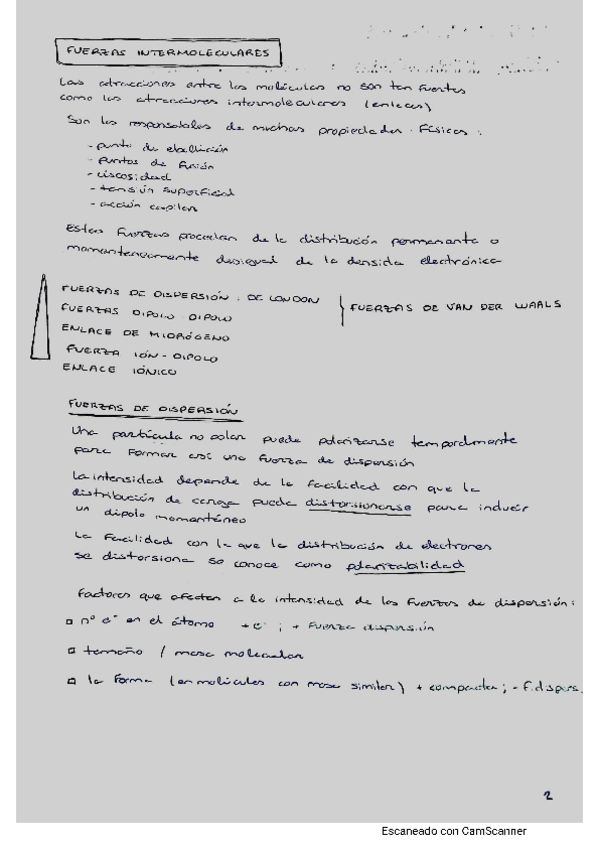 FUERZAS INTERMOLECULARES
Las atracciones entre las moléculas no son tan fuertes
como las atracciones intermoleculares (enlaces)
Son las responsables de muchas propiedades físicas:
- punto de ebullición
- puntos de fusión
- viscosidad
- tensión superficial
- acción capilar
Estas fuerzas procedan de la distribución permanente o
momentáneamente desigual de la densida electrónica
FUERZAS DE DISPERSIÓN: DE LONDON
FUERZAS DIPOLO DIPOLO
FUERZAS DE VAN DER WAALS
ENLACE DE HIDRÓGENO
FUERZA IÓN - DIPOLO
ENLACE IÓNICO
FUERZAS DE DISPERSIÓN
Una partícula no polar puede polarizarse temporalmente
para formar así una fuerza de dispersión
La intensidad depende de la facilidad con que la
distribución de carga pueda distorsionarse para inducir
un dipolo momentáneo
La facilidad con la que la distribución de electrones
se distorsiona se conoce como polarizabilidad
Factores que afectan a la intensidad de las fuerzas de dispersión:
nº e⁻ en el átomo +e⁻ ; + fuerza dispersión
tamaño / masa molecular
la forma (en moléculas con masa similar) + compacta; - f.dispers.
2
Escaneado con CamScanner